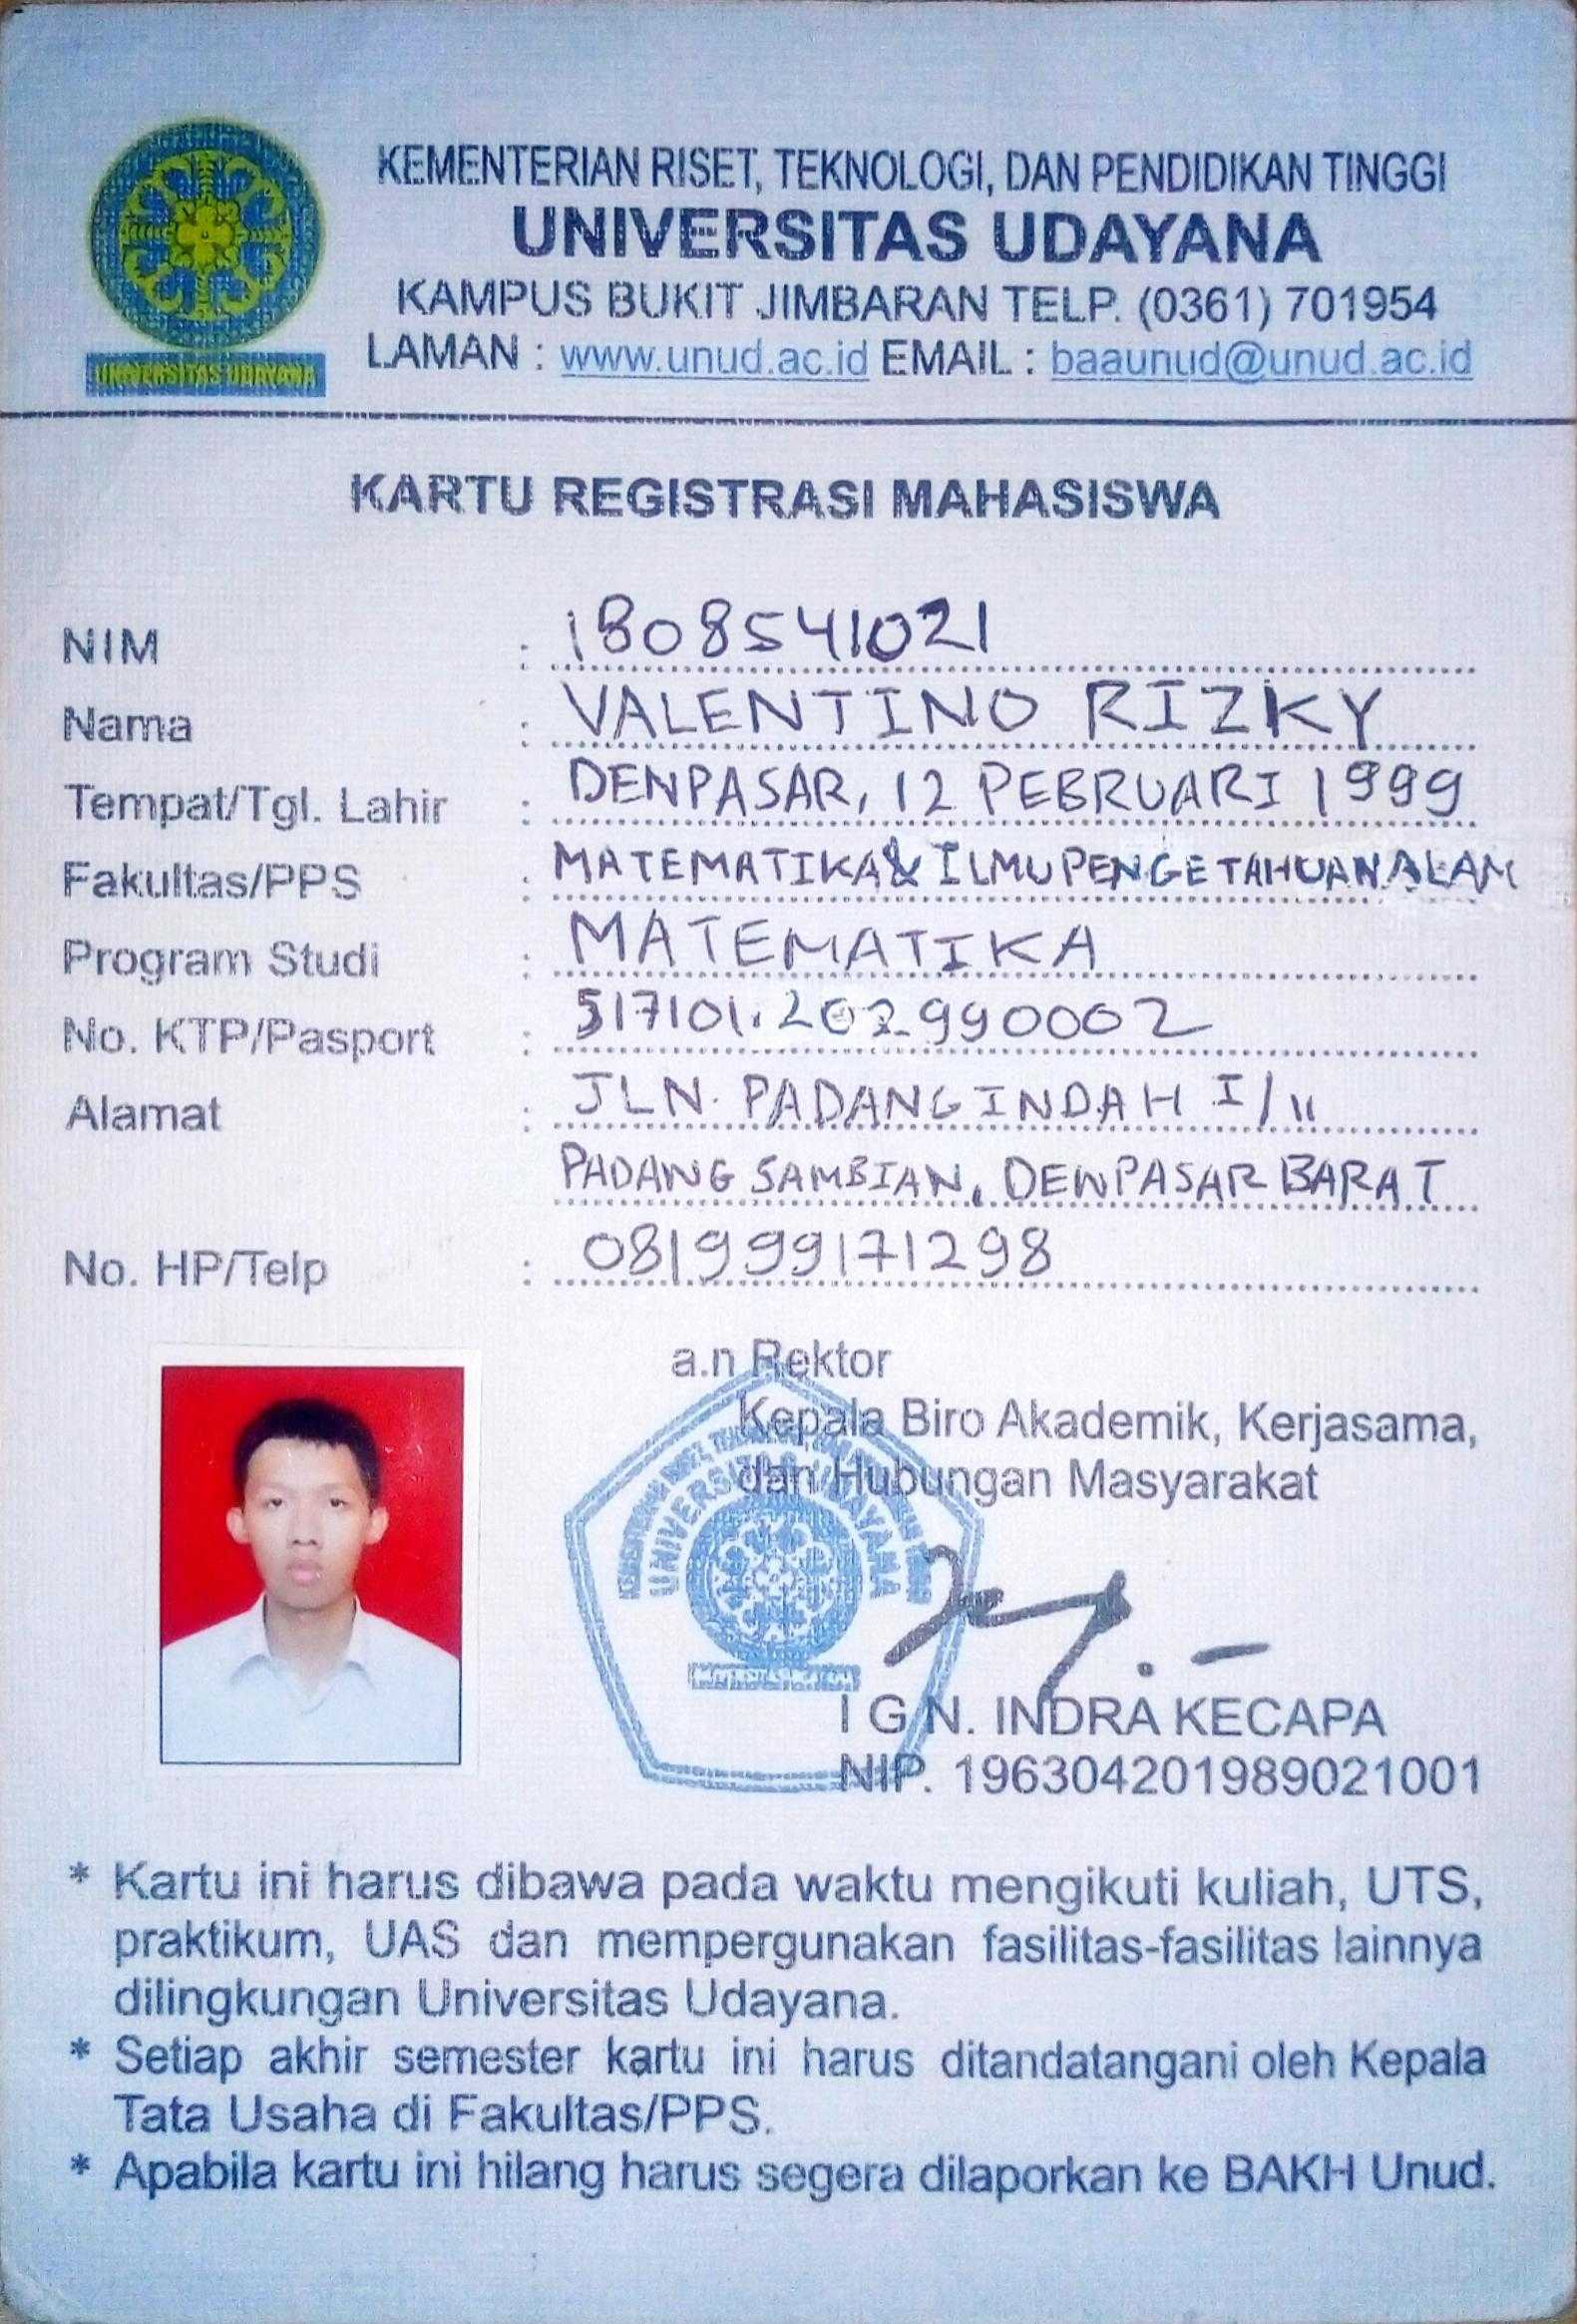 KEMENTERIAN RISET, TEKNOLOGI, DAN PENDIDIKAN TINGGI
UNIVERSITAS UDAYANA
KAMPUS BUKIT JIMBARAN TELP. (0361) 701954
LAMAN : www.unud.ac.id EMAIL : baaunud@unud.ac.id
UNIVERSITAS UDAYANA
KARTU REGISTRASI MAHASISWA
NIM : 1808541021
Nama : VALENTINO RIZKY
Tempat/Tgl. Lahir : DENPASAR, 12 PEBRUARI 1999
Fakultas/PPS : MATEMATIKA & ILMU PENGETAHUAN ALAM
Program Studi : MATEMATIKA
No. KTP/Pasport : 5171011202990002
Alamat : JLN. PADANG INDAH I/11
PADANG SAMBIAN, DENPASAR BARAT
No. HP/Telp : 081999171298
a.n Rektor
Kepala Biro Akademik, Kerjasama,
dan Hubungan Masyarakat
UNIVERSITAS UDAYANA
I G N. INDRA KECAPA
NIP. 196304201989021001
* Kartu ini harus dibawa pada waktu mengikuti kuliah, UTS,
praktikum, UAS dan mempergunakan fasilitas-fasilitas lainnya
dilingkungan Universitas Udayana.
* Setiap akhir semester kartu ini harus ditandatangani oleh Kepala
Tata Usaha di Fakultas/PPS.
* Apabila kartu ini hilang harus segera dilaporkan ke BAKH Unud.